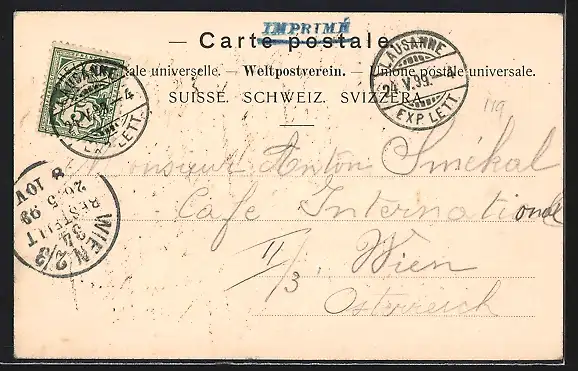 IMPRIMÉ
— Carte postale.
ale universelle. — Weltpostverein. — Unione postale universale.
SUISSE. SCHWEIZ. SVIZZERA.
LAUSANNE
24.V.99.
EXP. LETT.
LAUSANNE
EXP. LETT.
5
119
Monsieur Anton Smékal
Café International
II/3, Wien
Österreich
WIEN 2/3
34
BESTELLT
26.5.99
8 10V